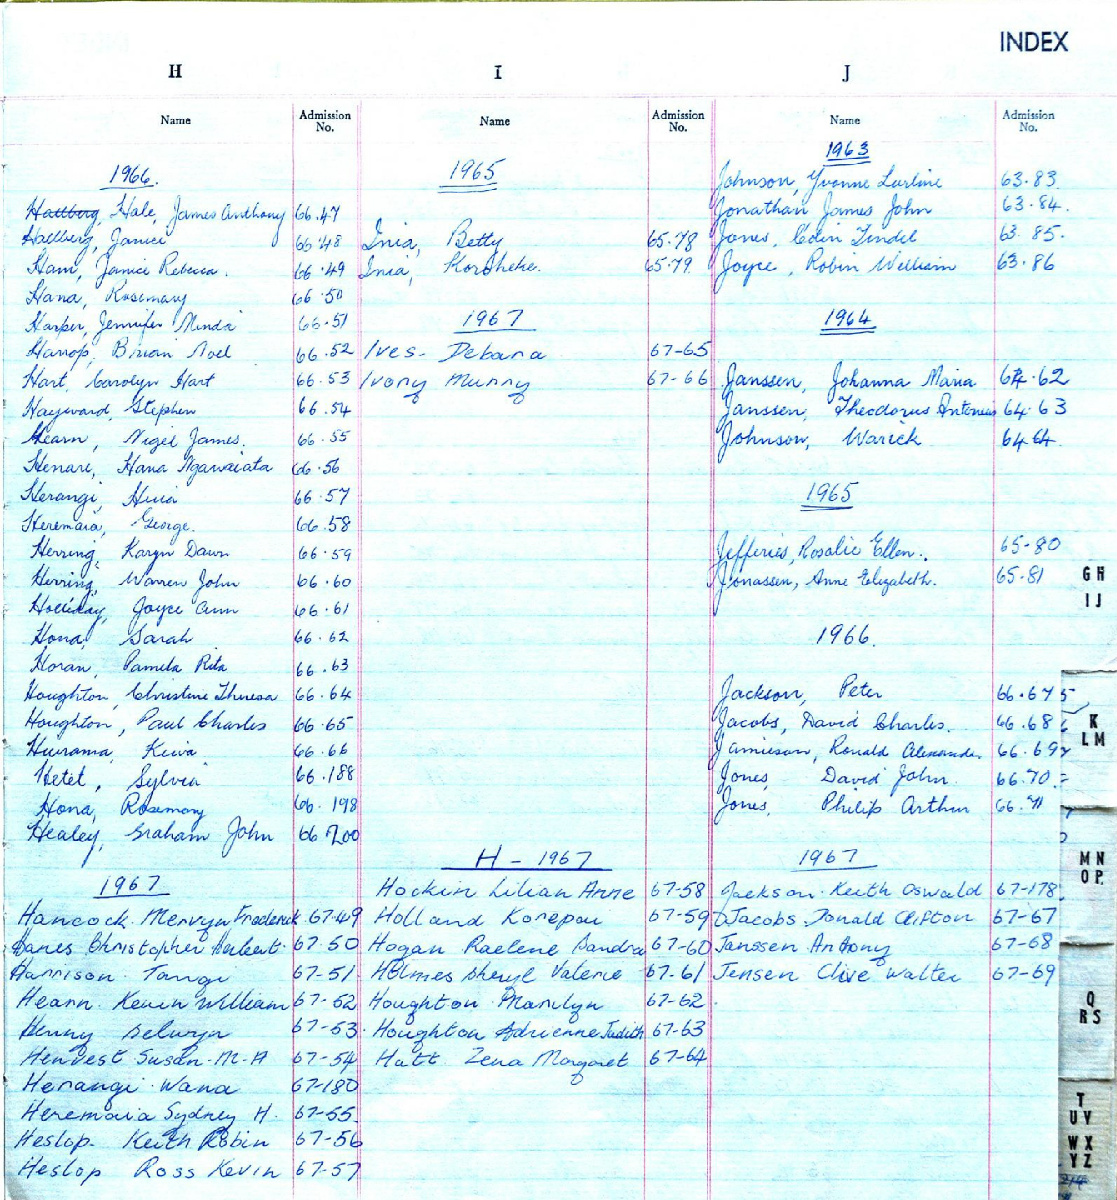 INDEX
H
Name
Admission No.
1966.
Hallberg, Hale, James Anthony 66.47
Hallberg, Janice 66.48
Ham, Janice Rebecca. 66.49
Hana, Rosemary 66.50
Harper, Jennifer Minda 66.51
Harrop, Brian Noel 66.52
Hart, Carolyn Hart 66.53
Hayward, Stephen 66.54
Hearn, Nigel James. 66.55
Henare, Hana Ngawaiata 66.56
Herangi, Huia 66.57
Heremaia, George. 66.58
Herring, Karyn Dawn 66.59
Herring, Warren John 66.60
Holliday, Joyce Ann 66.61
Hona, Sarah 66.62
Horan, Pamela Rita 66.63
Houghton, Christine Theresa 66.64
Houghton, Paul Charles 66.65
Hurama, Kiwa 66.66
Hetet, Sylvia 66.188
Hona, Rosemary 66.198
Healey, Graham John 66.200
1967
Hancock. Mervyn Frederick 67-49
Hanes Christopher Herbert. 67-50
Harrison Tangi 67-51
Hearn. Kevin William 67-52
Henry Selwyn 67-53
Henvest Susan. M. A 67-54
Herangi. Wana 67-180
Heremaia Sydney H. 67-55
Heslop. Keith Robin 67-56
Heslop Ross Kevin 67-57
I
Name
Admission No.
1965
Inia, Betty 65.78
Inia, Koroheke. 65.79
1967
Ives. Debara 67-65
Ivory Murray 67-66
H - 1967
Hockin Lilian Anne 67-58
Holland Korepau 67-59
Hogan Raelene Sandra 67-60
Holmes Sheryl Valerie 67-61
Houghton Marilyn 67-62
Houghton Adrienne Judith 67-63
Hutt Zena Margaret 67-64
J
Name
Admission No.
1963
Johnson, Yvonne Lurline 63.83.
Jonathan James John 63.84.
Jones, Colin Tendel 63.85.
Joyce, Robin William 63.86
1964
Janssen, Johanna Maria 64.62
Janssen, Theodorus Antonius 64.63
Johnson, Warick. 64.64.
1965
Jefferies, Rosalie Ellen. 65-80
Jonassen, Anne Elizabeth. 65.81
1966.
Jackson, Peter 66.67
Jacobs, David Charles. 66.68
Jamieson, Ronald Alexander. 66.69
Jones, David John. 66.70
Jones, Philip Arthur 66.71
1967
Jackson. Keith Oswald 67-178
Jacobs Donald Clifton 67-67
Janssen Anthony 67-68
Jensen Clive Walter 67-69
GH
IJ
K
LM
MN
OP
Q
RS
T
UV
WX
YZ